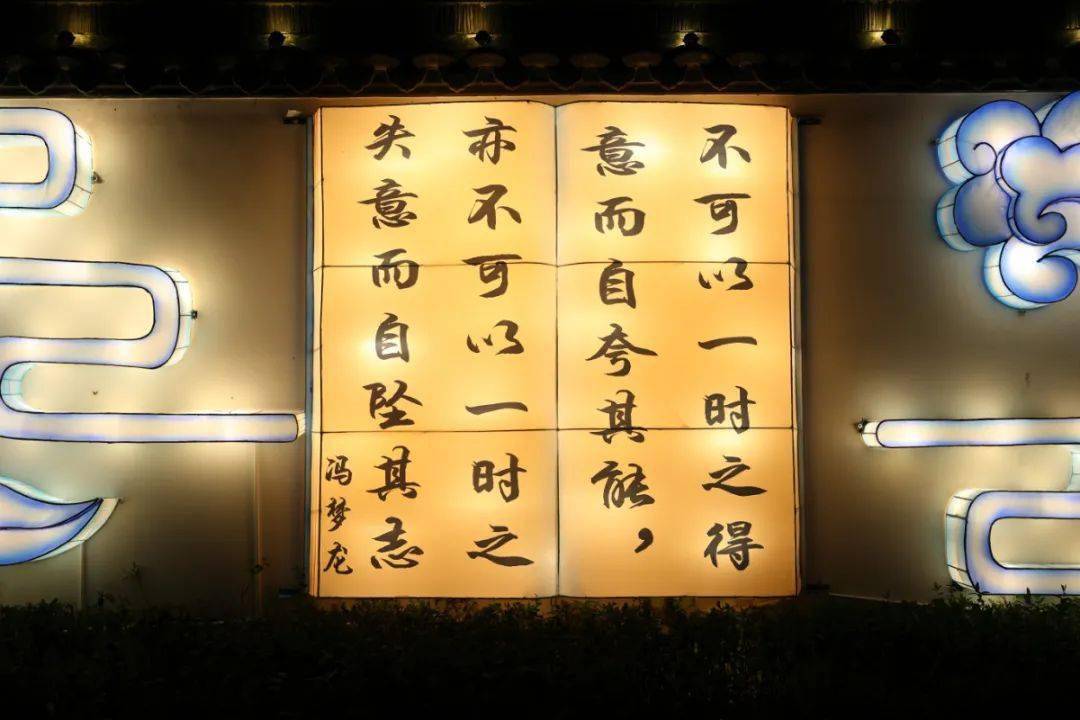 不可以一时之得
意而自夸其能，
亦不可以一时之
失意而自坠其志
冯梦龙